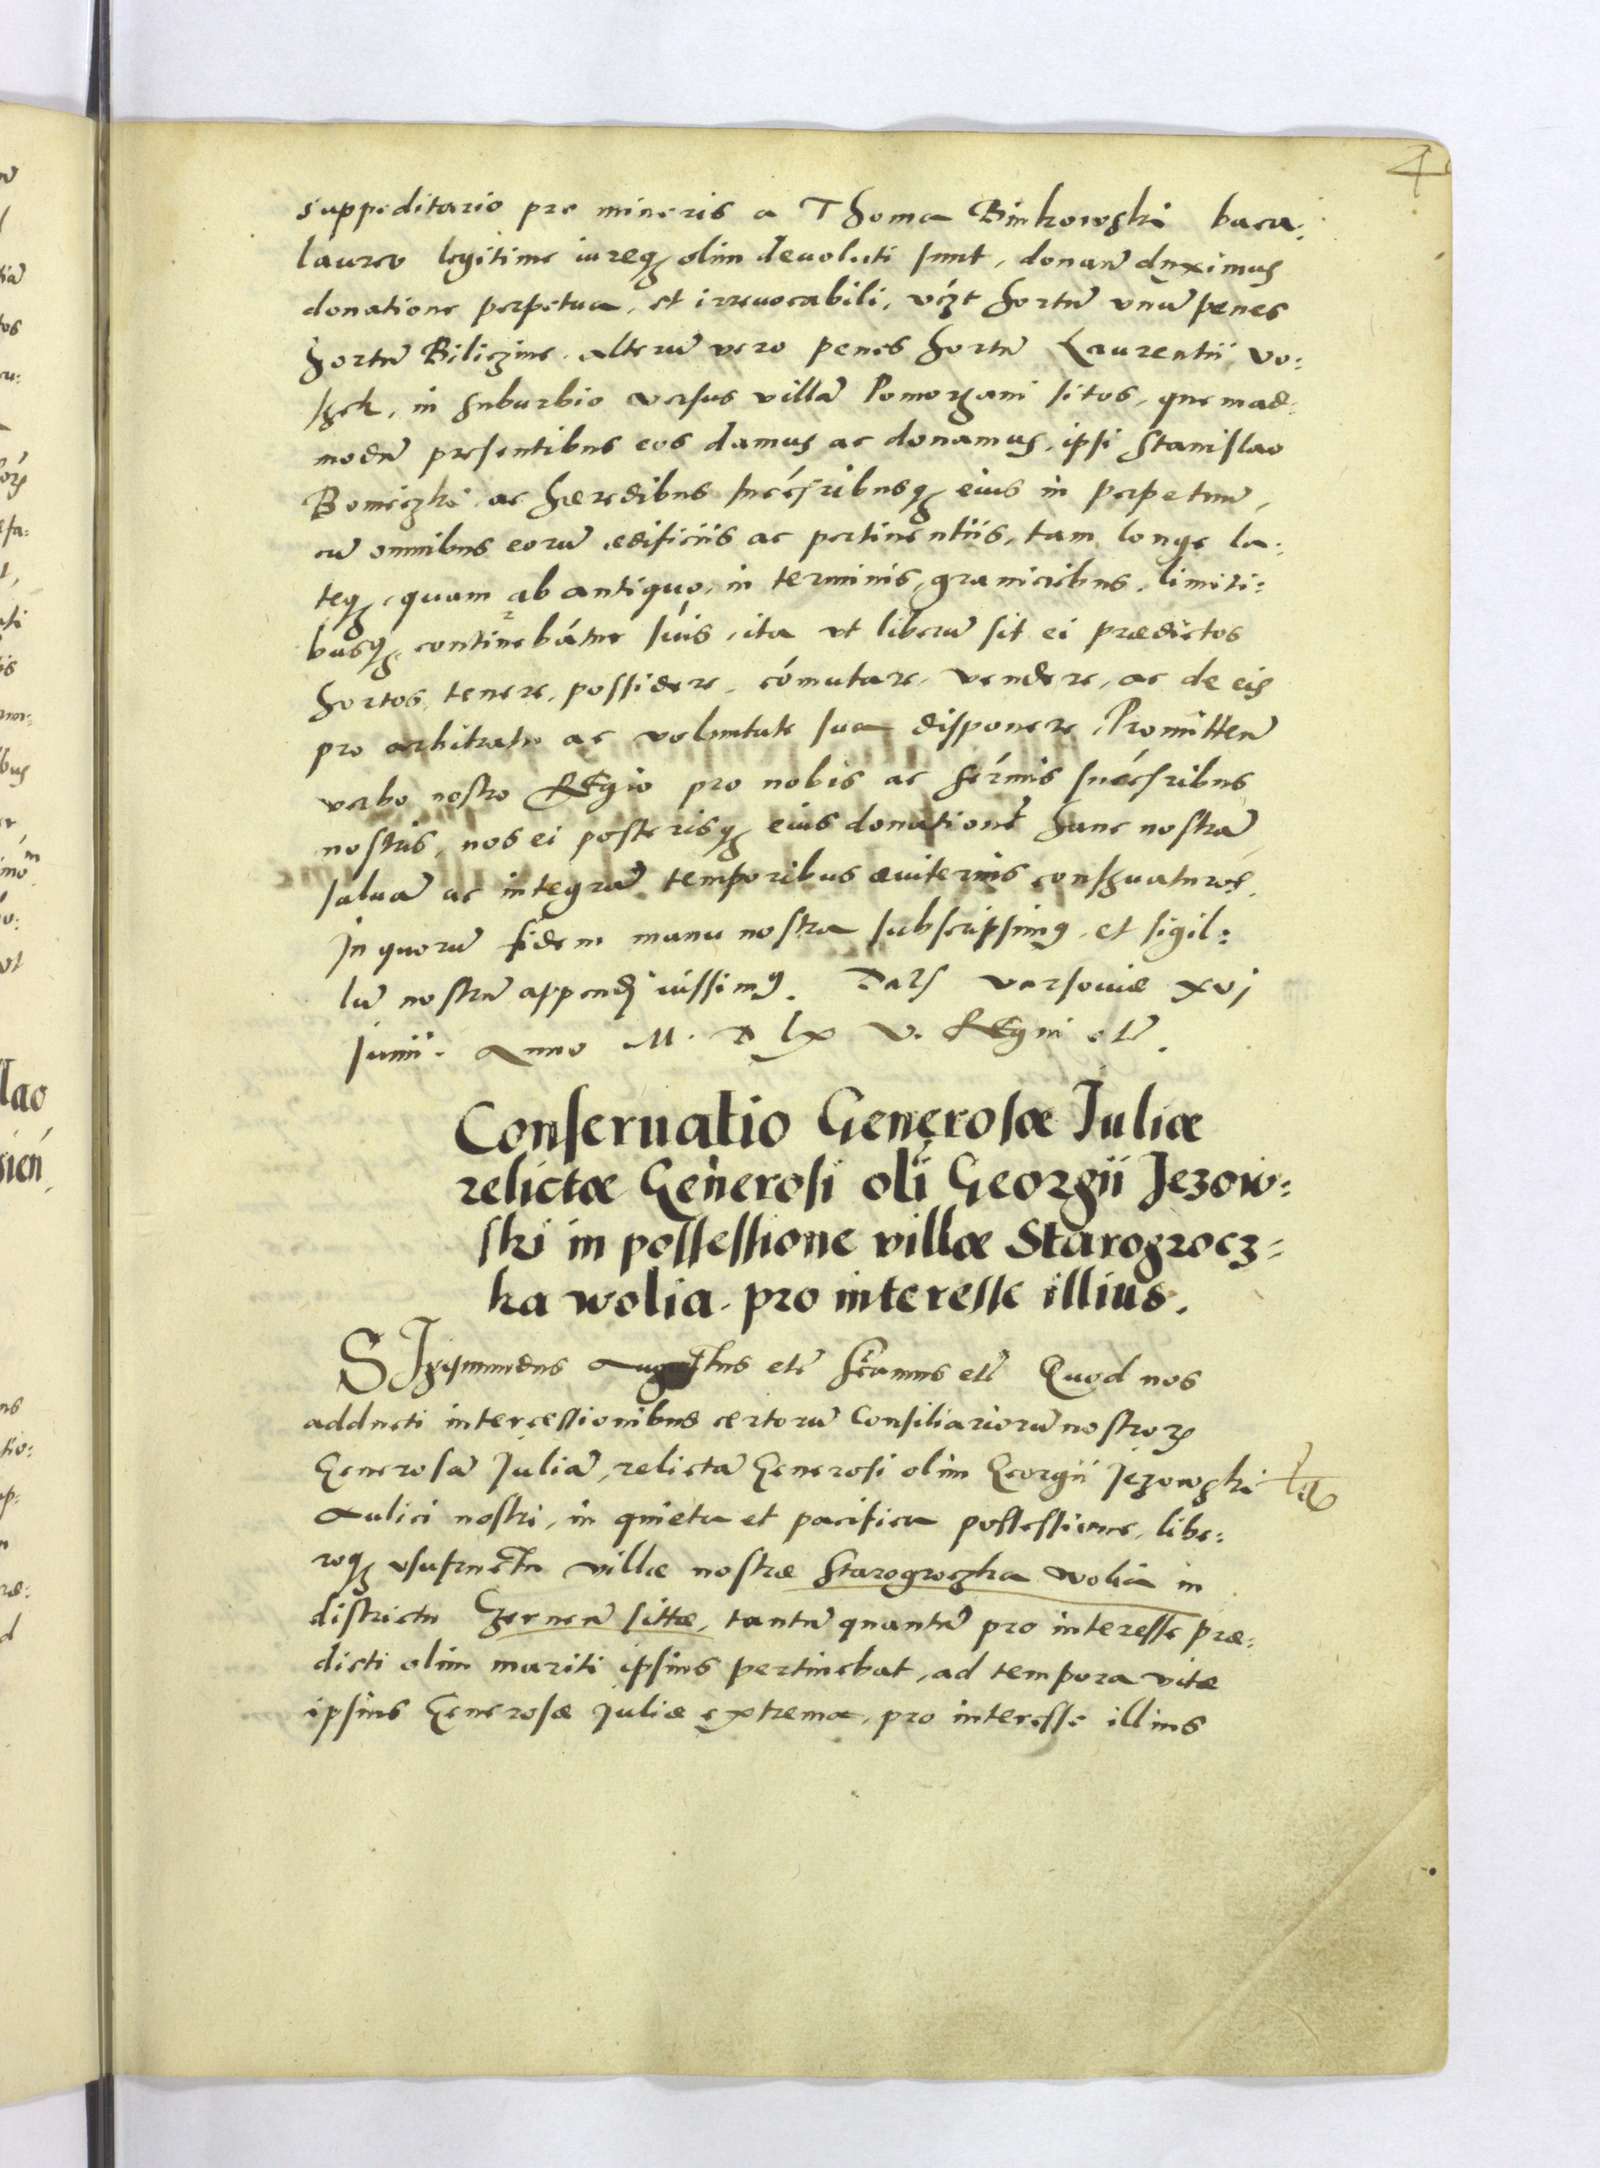 suppeditario pre mineris a Thoma Binkowski baca:
laureo legitime iureqȝ olim deuoluti sunt, donan̄ duximus
donatione perpetua, et irreuocabili, vczt hortū vnū penes
hortū Biliczine. alterū vero penes hortū Laurentii, vo:
szek, in suburbio versus villā Pomorzani sitos, quemad:
modū presentibus eos damus ac donamus, ipsi Stanislao
Bomiczki ac hæredibus succ̄sribusqȝ eius in perpetuū,
cū omnibus eorū ædificiis ac pertinentiis, tam longe la:
teqȝ, quam ab antiquo, in terminis, granicibus, limiti:
busqȝ continebāt̄ur suis, ita vt liberū sit ei prædictos
hortos, tenere, possidere, cōmutare, vendere, ac de eis
pro arbitratu ac voluntate sua disponere, Promitten̄
verbo nostro REgio pro nobis ac ser̄mis succ̄sribus
nostris, nos ei posterisqȝ eius donationē hanc nostrā
saluā ac integrā temporibus æuiternis conseruaturos.
In quorū fidem manu nostra subscripsimꝰ. et sigil:
lū nostrū appendj iussimꝰ. Dats varsouiæ xvj
Junii. Anno M. D lx v. REgni etc̄.
Conseruatio Generosæ Iuliæ
relictæ Generosi olī Georgii Jezow:
ski in possessione villæ Starogrocz:
ka wolia. pro interesse illius.
SIgismundus Augustus etc̄ sc̄amus etc̄ Quod nos
adducti intercessionibus certorū Consiliariorū nostroꝝ
Generosā Juliā, relictā Generosi olim Georgii Jezowski
Aulici nostri, in quieta et pacifica possessione, libe:
roqȝ vsufructu villæ nostræ Starogroczka wolia in
districtu Czernen̄ sittæ, tantū quantū pro interesse præ:
dicti olim mariti ipsius pertinebat, ad tempora vitæ
ipsius Generosæ Juliæ extrema, pro interesse illius